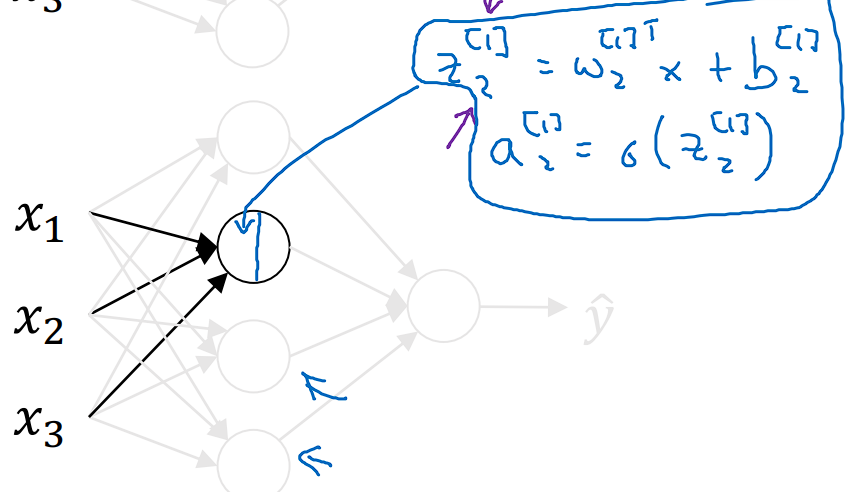 z₂^[1] = w₂^[1]T x + b₂^[1]
a₂^[1] = σ(z₂^[1])
x₁
x₂
ŷ
x₃